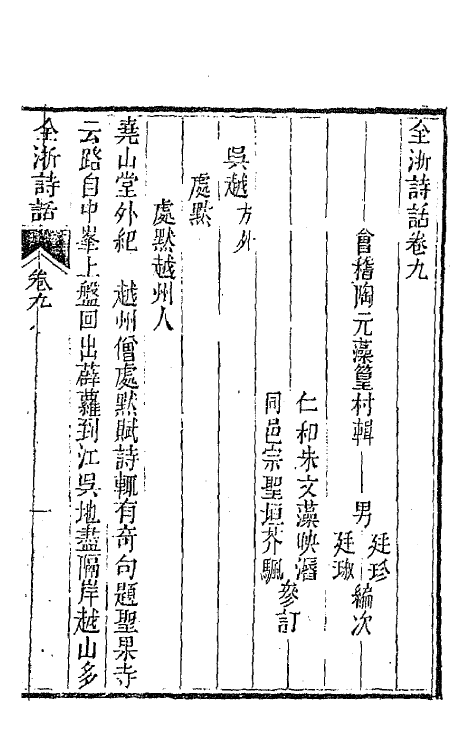 全浙詩話卷九
會稽陶元藻篁村輯　男廷珍
廷琡編次
仁和朱文藻映漘
同邑宗聖垣芥颿參訂
吳越方外
處默
處默越州人
堯山堂外紀　越州僧處默賦詩輒有奇句題聖果寺
云路自中峯上盤回出薜蘿到江吳地盡隔岸越山多
全浙詩話　卷九　一